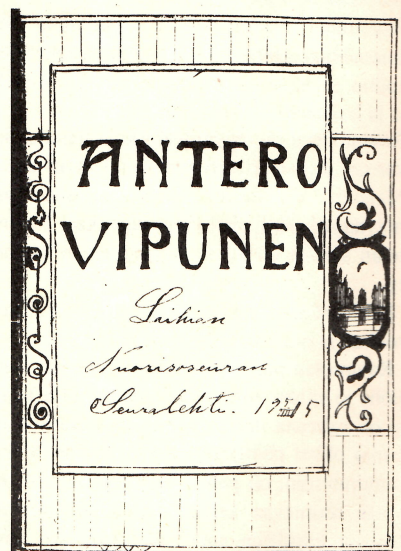 ANTERO
VIPUNEN
Laihian
Nuorisoseuran
Seuralehti. 19 5/III 15